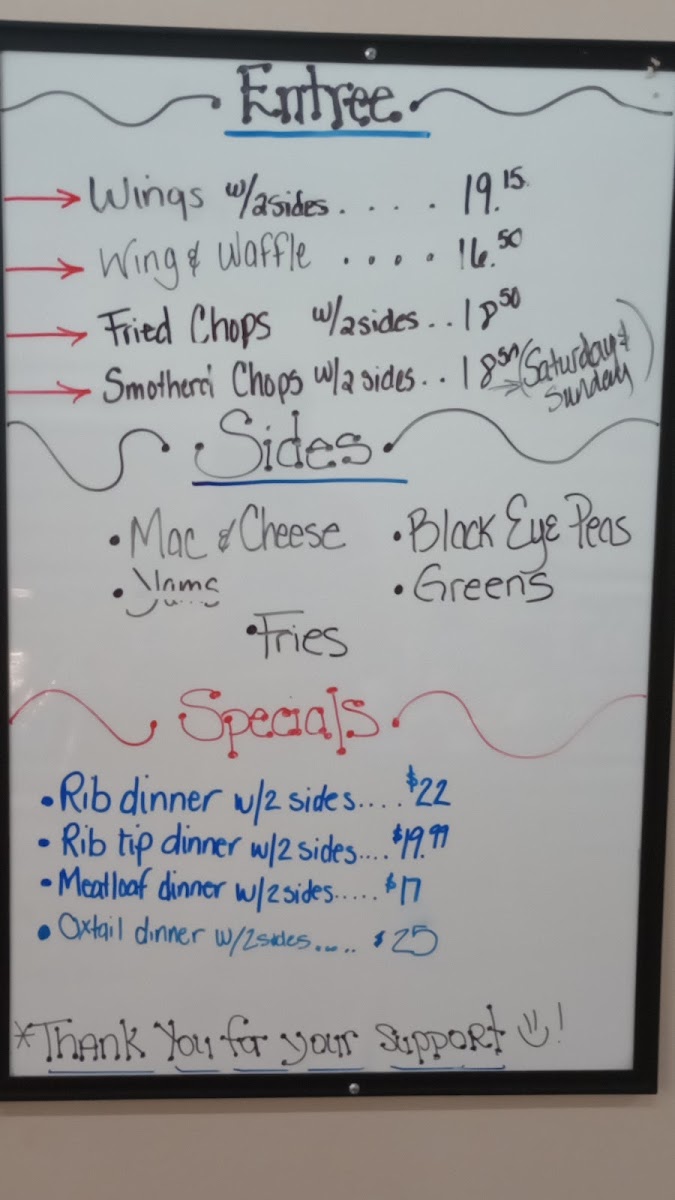 Entree
Wings w/2sides. . . . . 19.15
Wing & Waffle . . . . 16.50
Fried Chops w/2sides. . 18 50
Smotherd Chops w/2 sides. . 18 50 (Saturday &
Sunday)
Sides
• Mac & Cheese • Black Eye Peas
• Yams • Greens
• Fries
Specials
• Rib dinner w/2 sides.... $22
• Rib tip dinner w/2 sides.... $19.99
• Meatloaf dinner w/2sides..... $17
• Oxtail dinner w/2sides..... $25
*Thank You for your support !